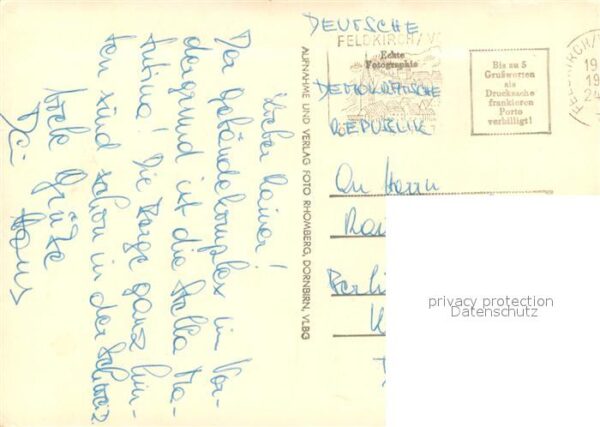 Lieber Rainer!
Der Gebäudekomplex im Vor-
dergrund ist die Stella Ma-
tutina! Die Berge ganz hin-
ten sind schon in der Schweiz.
Viele Grüße
Dein
Hans
AUFNAHME UND VERLAG FOTO RHOMBERG, DORNBIRN, VLBG
DEUTSCHE
DEMOKRATISCHE
REPUBLIK
FELDKIRCH/V
Echte
Fotographie
Bis zu 5
Grußworten
als
Drucksache
frankieren
Porto
verbilligt!
FELDKIRCH/
19
19
24
An Herrn
Rai
Berlin
privacy protection
Datenschutz